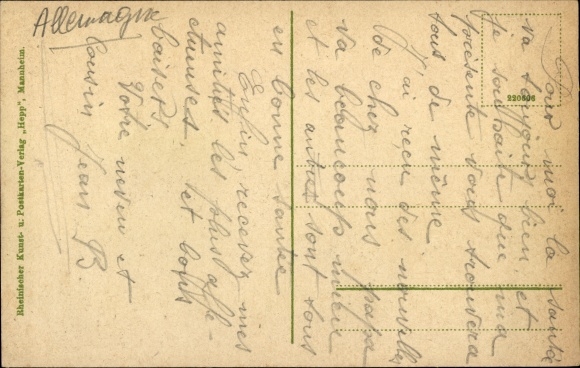 Allemagne
Pour moi la santé
va toujours bien, et
je souhaite que ma
présente vous trouvera
tous de même
J'ai reçu des nouvelles
de chez nous papa
va beaucoup mieux
et les autres sont tous
en bonne santée
Enfin, recevez mes
amitiés les plus affe-
ctueuses. et bons
baisers
Votre neveu et
Cousin Jean B.
220606
Rheinischer Kunst- u. Postkarten-Verlag „Hepp", Mannheim.